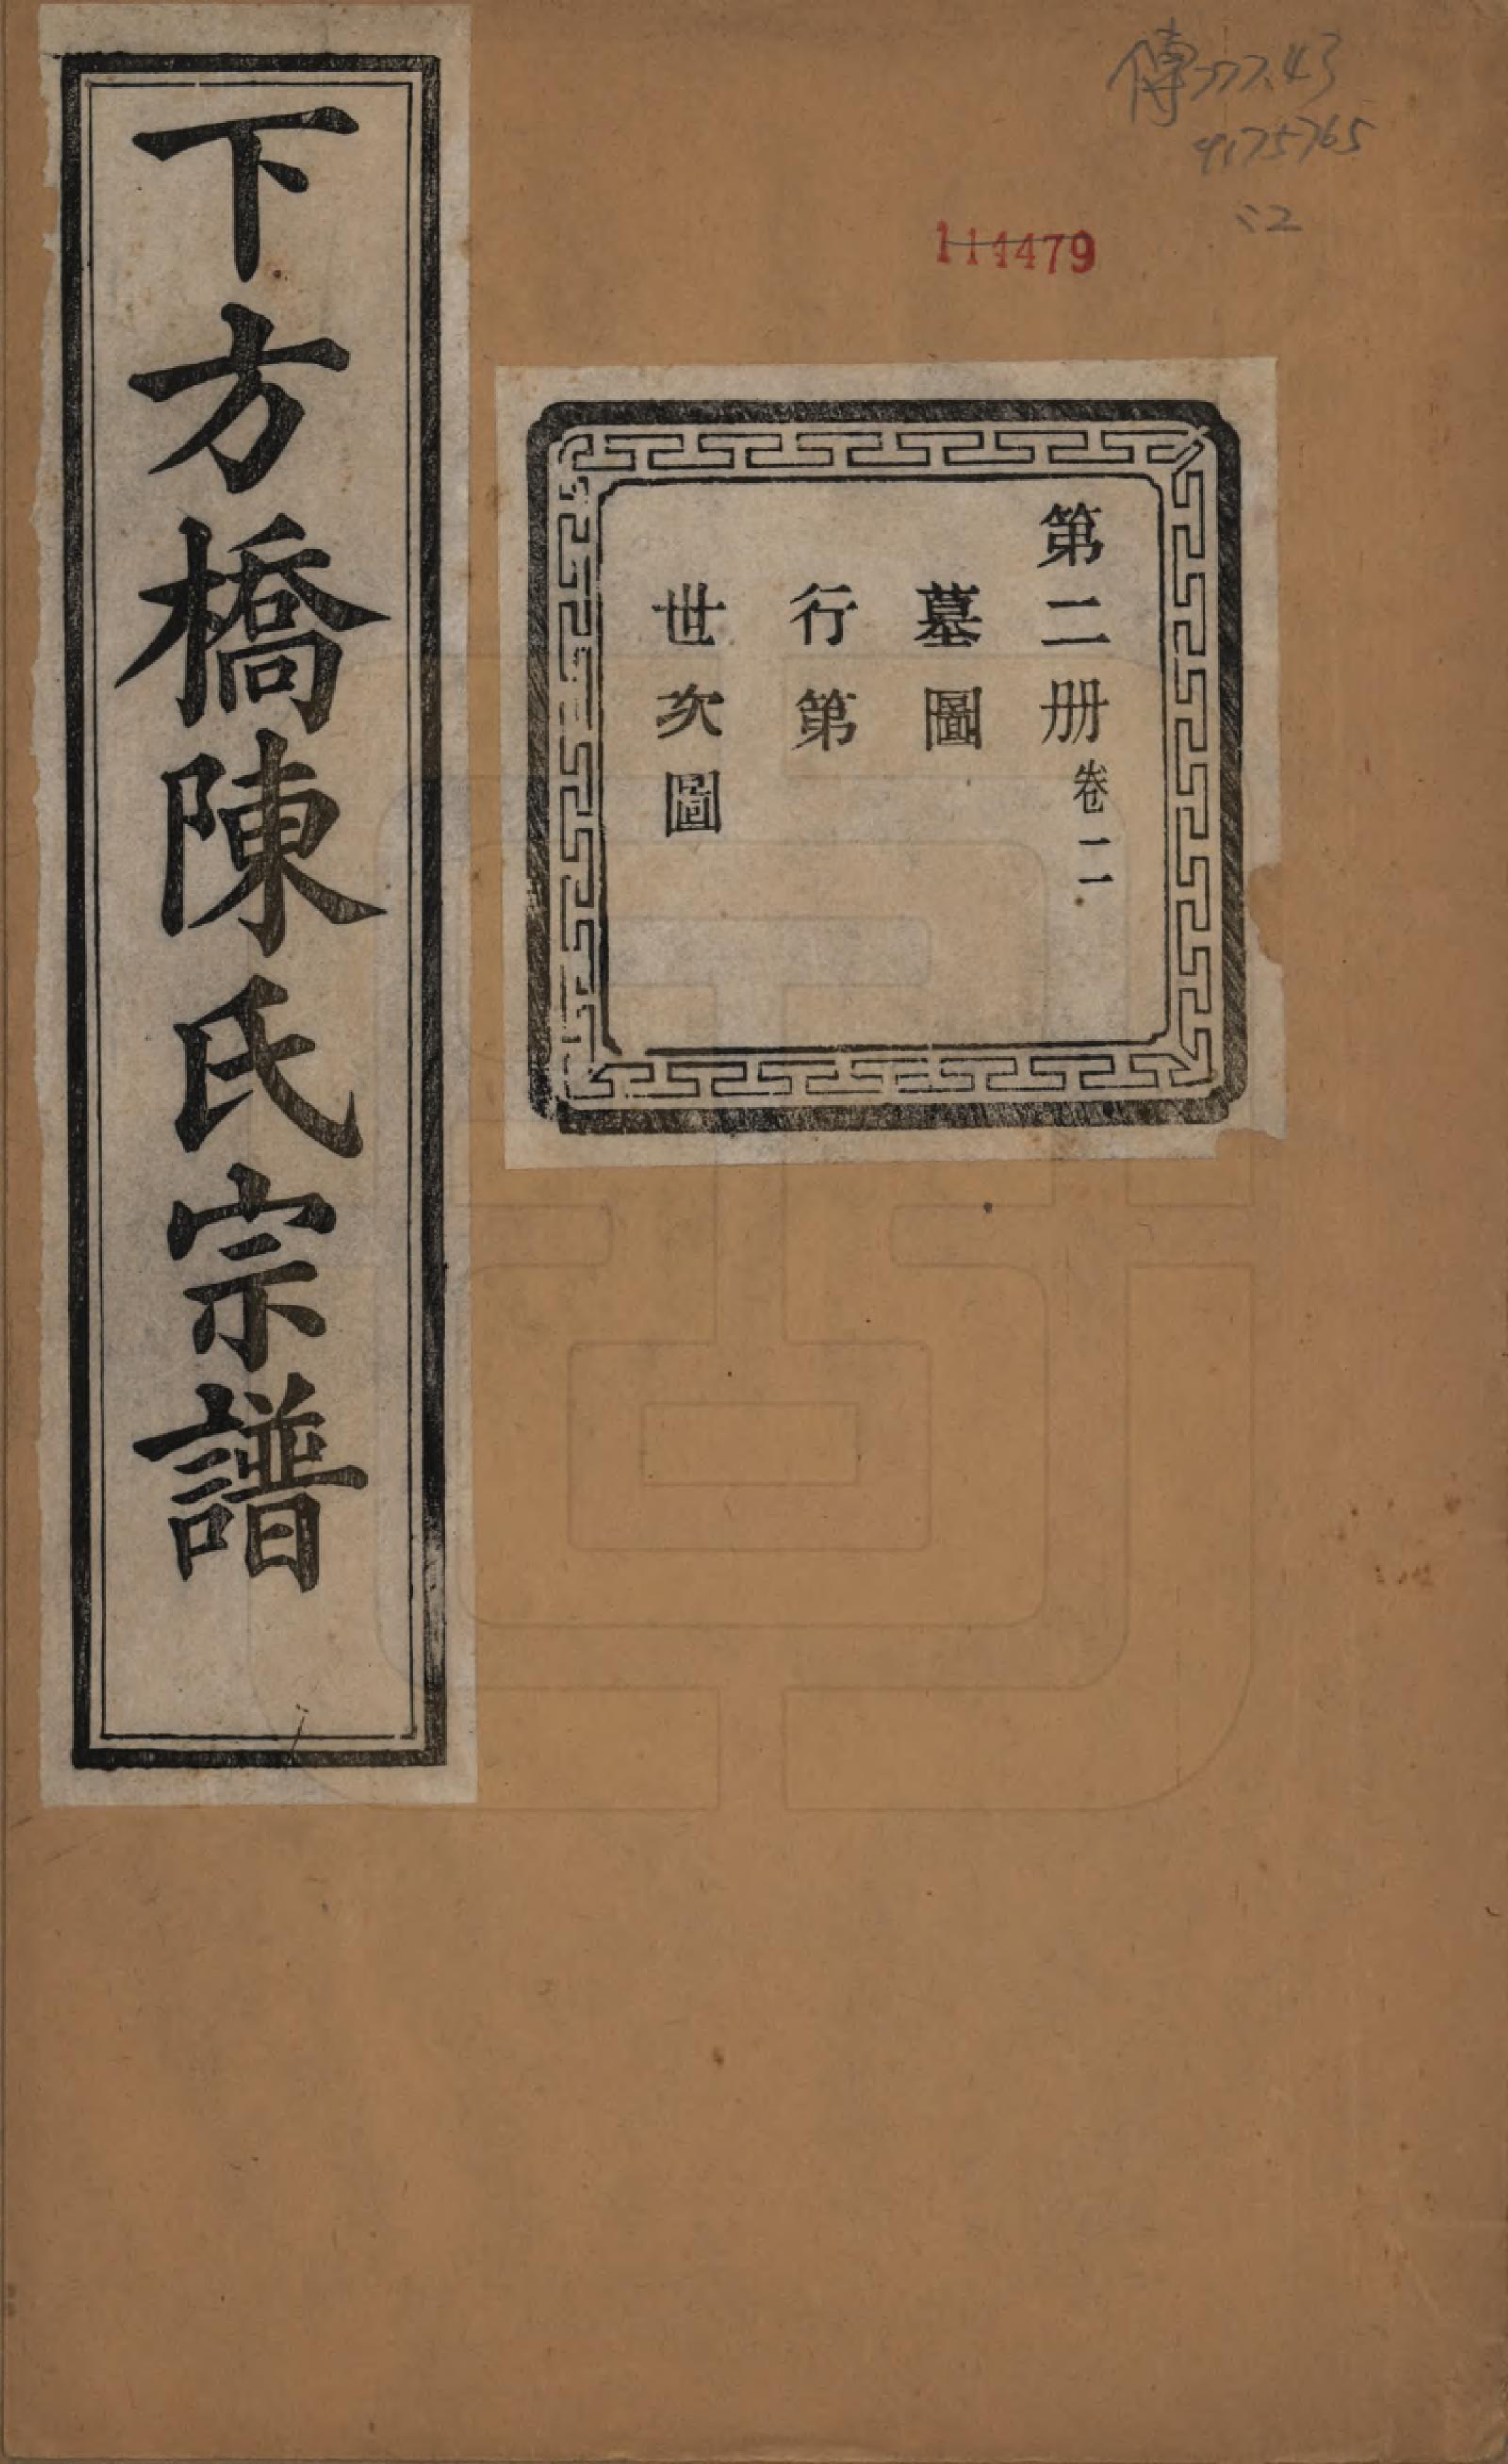 下方橋陳氏宗譜
第二册卷二
墓圖
行第
世次圖
傳777.43
9175765
:2
114479